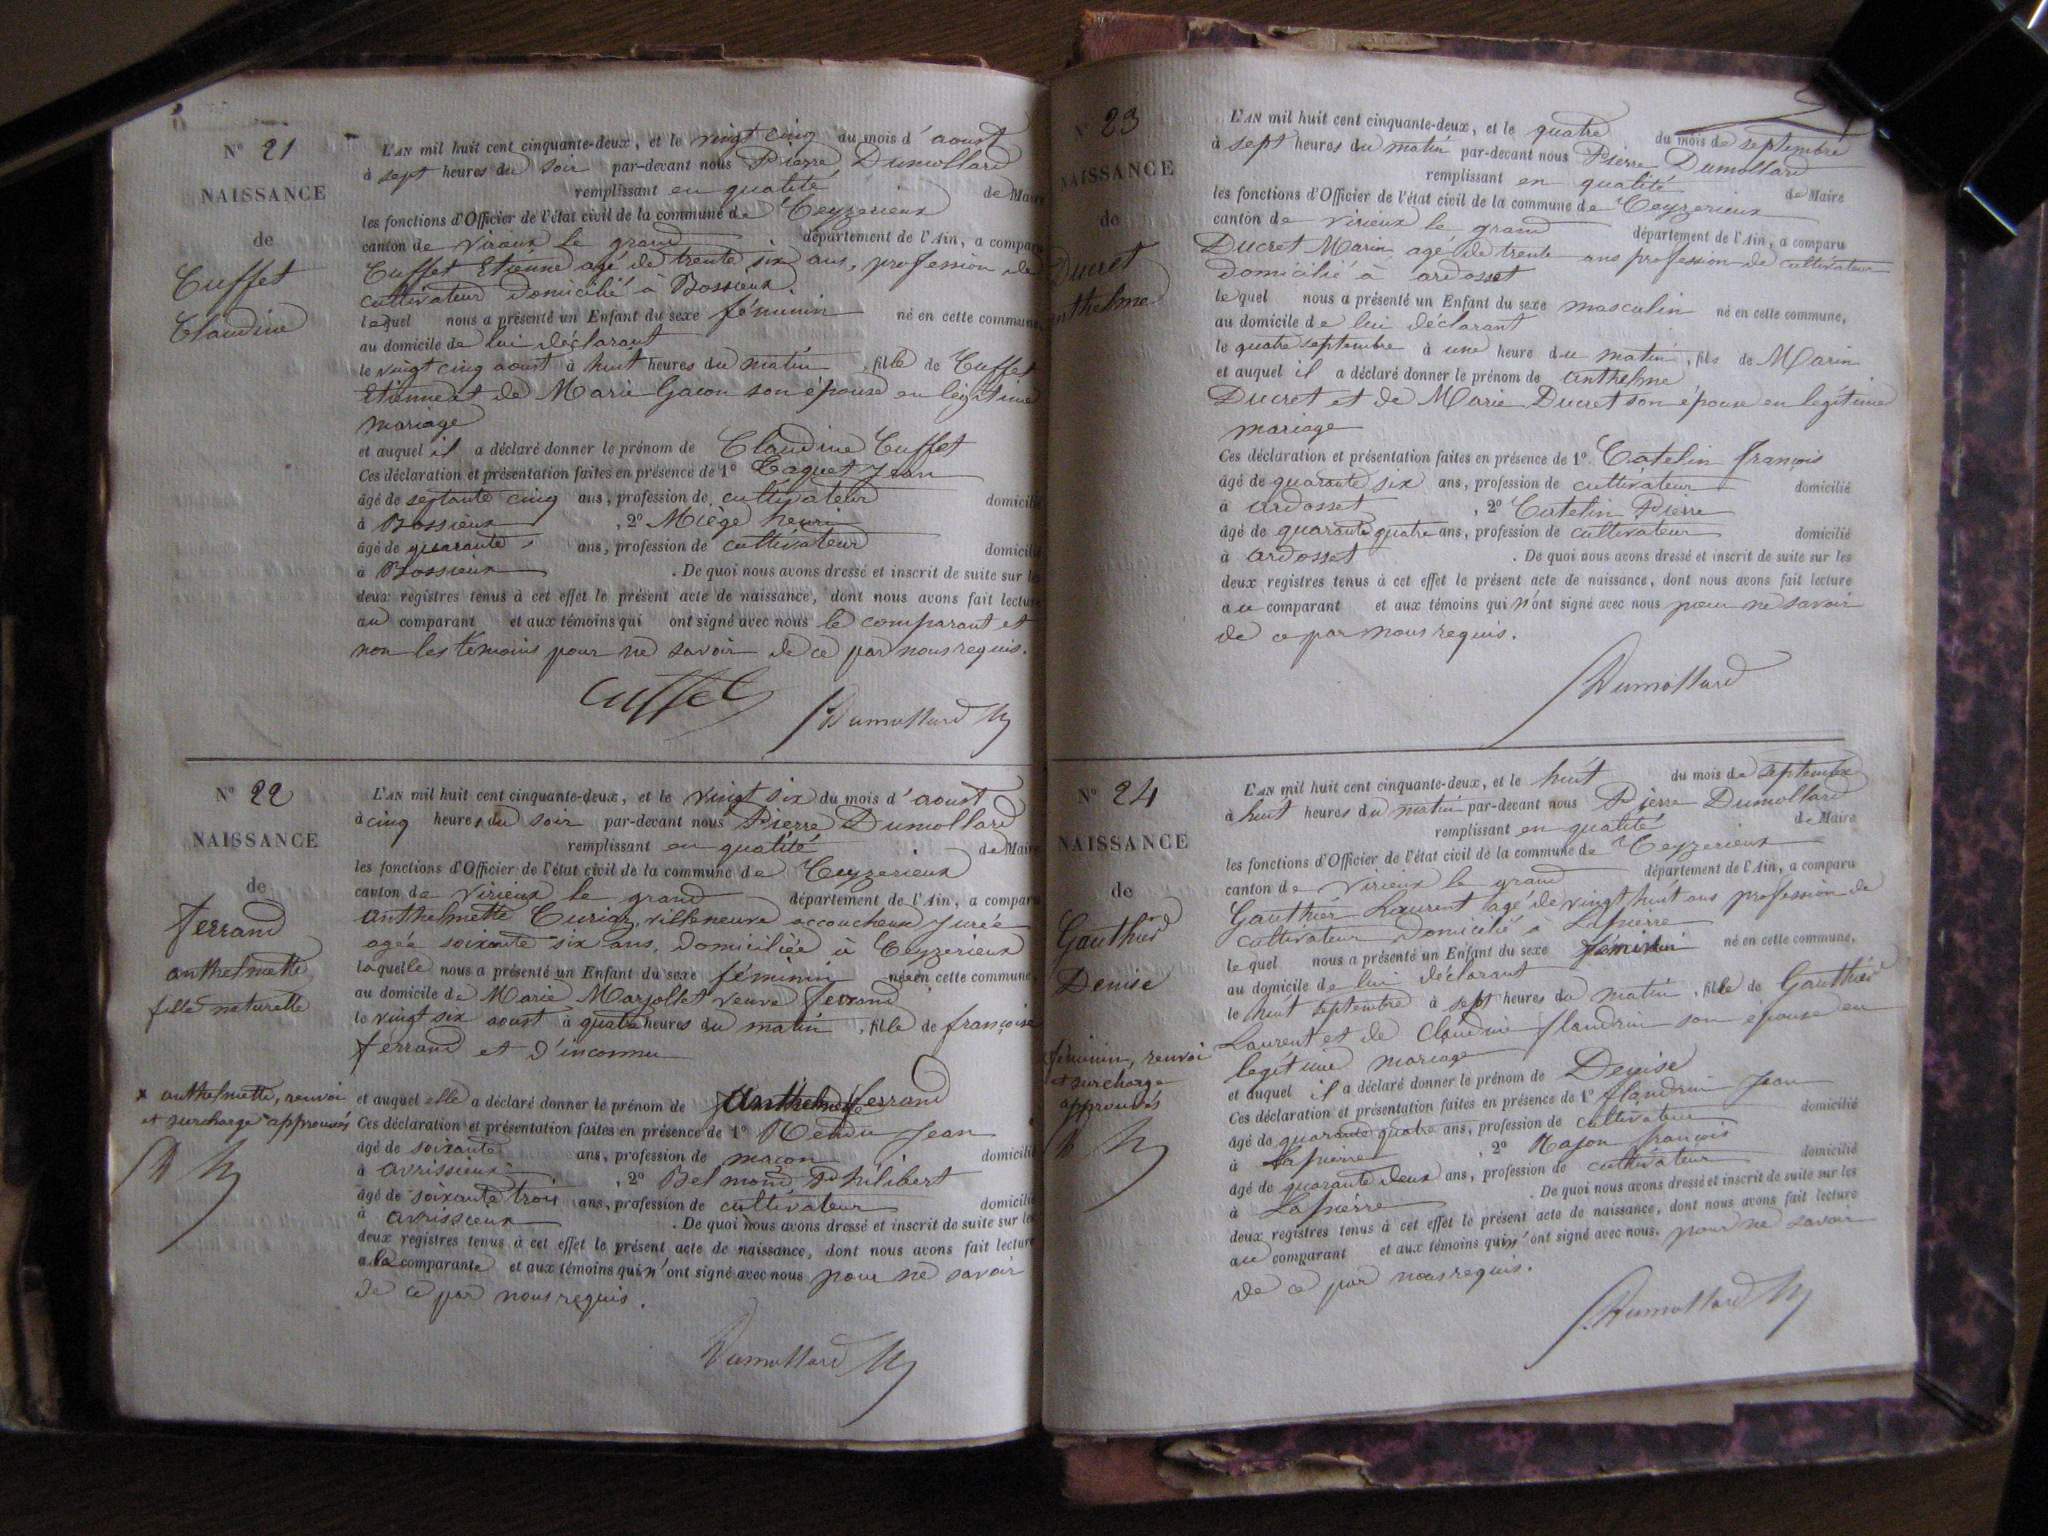 N° 21
NAISSANCE
de
Cuffet
Claudine
L'AN mil huit cent cinquante-deux, et le vingt cinq du mois d'aoust
à sept heures du soir par-devant nous Pierre Dumollard
remplissant en qualité de Maire
les fonctions d'Officier de l'état civil de la commune de Ceyzerieux
canton de Virieux le grand département de l'Ain, a comparu
Cuffet Etienne agé de trente six ans, profession de
cultivateur domicilié à Bossieux.
lequel nous a présenté un Enfant du sexe féminin né en cette commune,
au domicile de lui déclarant
le vingt cinq aoust à huit heures du matin, fille de Cuffet
Etienne et de Marie Gacon son épouse en légitime
mariage
et auquel il a déclaré donner le prénom de Claudine Cuffet
Ces déclaration et présentation faites en présence de 1° Jean
âgé de septante cinq ans, profession de cultivateur domicilié
à Bossieux, 2° Miège henri
âgé de quarante ans, profession de cultivateur domicilié
à Bossieux. De quoi nous avons dressé et inscrit de suite sur les
deux registres tenus à cet effet le présent acte de naissance, dont nous avons fait lecture
au comparant et aux témoins qui ont signé avec nous le comparant et
non les témoins pour ne savoir de ce par nous requis.
Cuffet
Dumollard
N° 22
NAISSANCE
de
ferrand
anthelmette
fille naturelle
L'AN mil huit cent cinquante-deux, et le vingt six du mois d'aoust
à cinq heures du soir par-devant nous Pierre Dumollard
remplissant en qualité de Maire
les fonctions d'Officier de l'état civil de la commune de Ceyzerieux
canton de Virieux le grand département de l'Ain, a comparu
anthelmette accoucheuse jurée
agée soixante six ans, domiciliée à Ceyzerieux
laquelle nous a présenté un Enfant du sexe féminin née en cette commune,
au domicile de Marie Marjollet veuve ferrand
le vingt six aoust à quatre heures du matin, fille de françoise
ferrand et d'inconnu
x anthelmette, renvoi
et surcharge approuvés
et auquel elle a déclaré donner le prénom de anthelmette ferrand
Ces déclaration et présentation faites en présence de 1° Jean
âgé de soixante ans, profession de maçon domicilié
à avrissieux, 2° Belmond Philibert
âgé de soixante trois ans, profession de cultivateur domicilié
à avrissieux. De quoi nous avons dressé et inscrit de suite sur les
deux registres tenus à cet effet le présent acte de naissance, dont nous avons fait lecture
a la comparante et aux témoins qui n'ont signé avec nous pour ne savoir
de ce par nous requis.
Dumollard
N° 23
NAISSANCE
de
Ducret
anthelme
L'AN mil huit cent cinquante-deux, et le quatre du mois de septembre
à sept heures du matin par-devant nous Pierre Dumollard
remplissant en qualité de Maire
les fonctions d'Officier de l'état civil de la commune de Ceyzerieux
canton de Virieux le grand département de l'Ain, a comparu
Ducret Marin agé de trente ans profession de cultivateur
domicilié à ardosset
lequel nous a présenté un Enfant du sexe masculin né en cette commune,
au domicile de lui déclarant
le quatre septembre à une heure du matin, fils de Marin
et auquel il a déclaré donner le prénom de anthelme
Ducret et de Marie Ducret son épouse en légitime
mariage
Ces déclaration et présentation faites en présence de 1° Catelin françois
âgé de quarante six ans, profession de cultivateur domicilié
à ardosset, 2° Catelin Pierre
âgé de quarante quatre ans, profession de cultivateur domicilié
à ardosset. De quoi nous avons dressé et inscrit de suite sur les
deux registres tenus à cet effet le présent acte de naissance, dont nous avons fait lecture
au comparant et aux témoins qui n'ont signé avec nous pour ne savoir
de ce par nous requis.
Dumollard
N° 24
NAISSANCE
de
Gauthier
Denise
L'AN mil huit cent cinquante-deux, et le huit du mois de septembre
à huit heures du matin par-devant nous Pierre Dumollard
remplissant en qualité de Maire
les fonctions d'Officier de l'état civil de la commune de Ceyzerieux
canton de Virieux le grand département de l'Ain, a comparu
Gauthier Laurent agé de vingt huit ans profession de
cultivateur domicilié à Lapierre
lequel nous a présenté un Enfant du sexe féminin né en cette commune,
au domicile de lui déclarant
le huit septembre à sept heures du matin, fille de Gauthier
Laurent et de Claudine flandrin son épouse en
légitime mariage
féminin, renvoi
et surcharge
approuvés
et auquel il a déclaré donner le prénom de Denise
Ces déclaration et présentation faites en présence de 1° flandrin Jean
âgé de quarante quatre ans, profession de cultivateur domicilié
à Lapierre, 2° françois
âgé de quarante deux ans, profession de cultivateur domicilié
à Lapierre. De quoi nous avons dressé et inscrit de suite sur les
deux registres tenus à cet effet le présent acte de naissance, dont nous avons fait lecture
au comparant et aux témoins qui n'ont signé avec nous. pour ne savoir
de ce par nous requis.
Dumollard